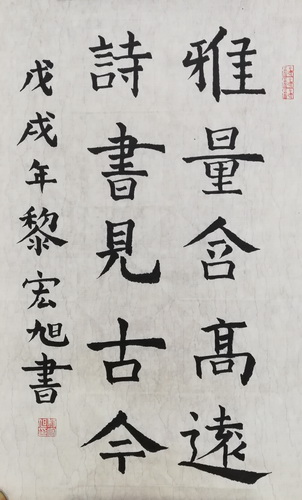 雅量含高遠
詩書見古今
戊戌年黎宏旭書